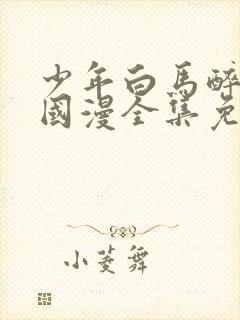 少年白馬醉
國漫全集免
小菱舞